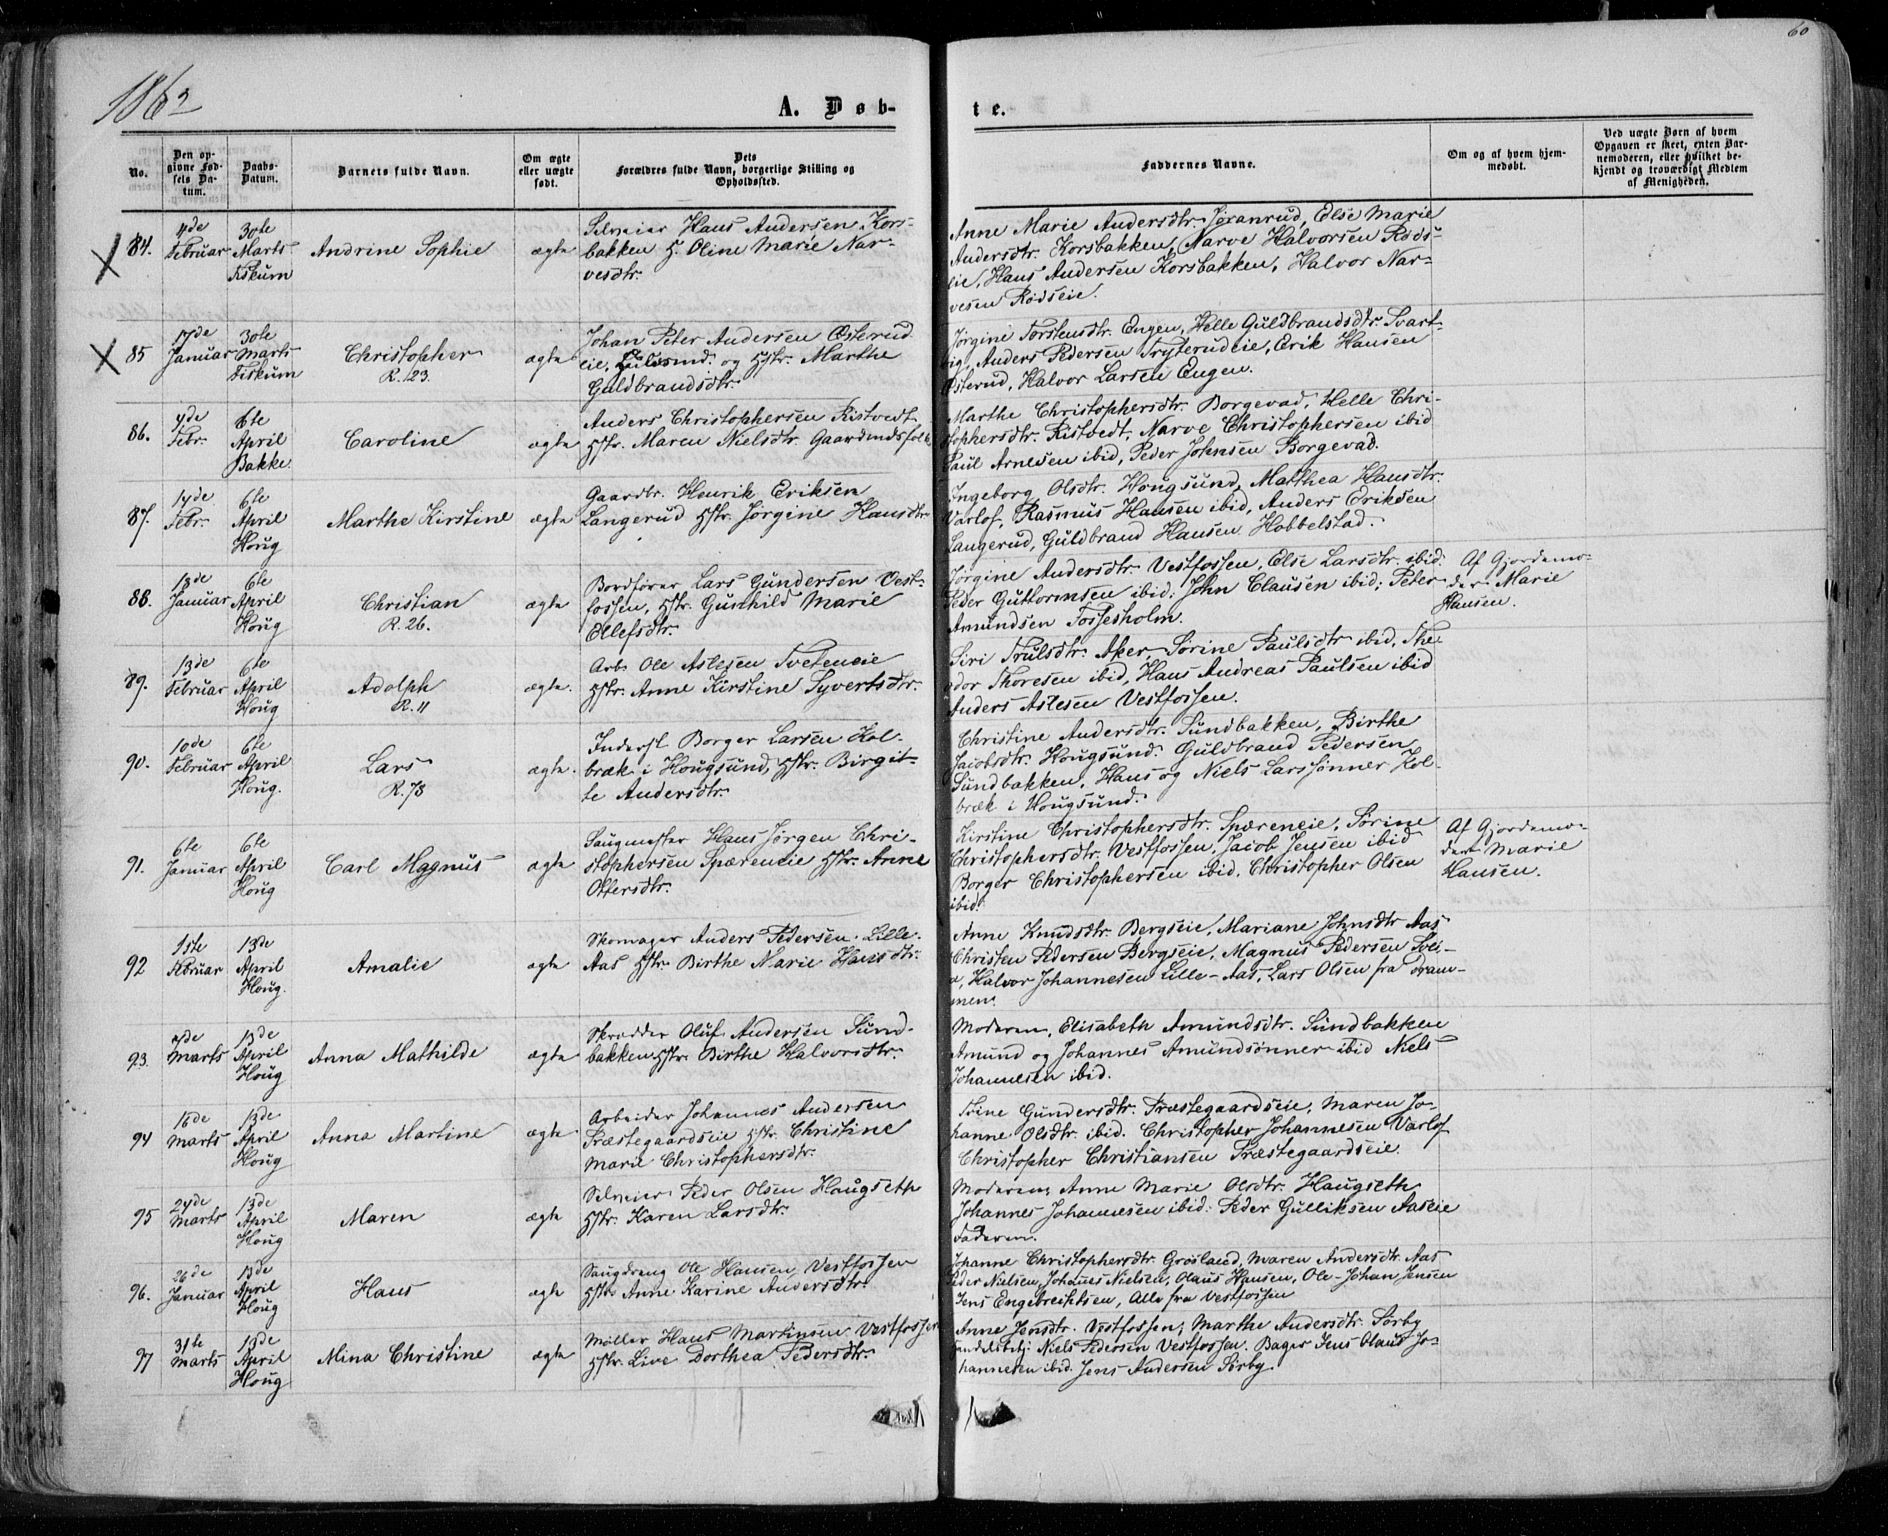 60
1862
A. Døb-
te.
No.
Den op-
givne Fød-
sels Da-
tum.
Daabs-
Datum.
Barnets fulde Navn.
Om ægte
eller uægte
født.
Dets
Forældres fulde Navn, borgerlige Stilling og
Opholdssted.
Faddernes Navne.
Om og af hvem hjem-
medøbt.
Ved uægte Børn af hvem
Opgaven er skeet, enten Bar-
nemoderen, eller hvilket be-
kjendt og troværdigt Medlem
af Menigheden.
84.
4de
Februar
30te
Marts
Fiskum
Andrine Sophie
ægte
Selveier Hans Andersen Kors-
bakken H. Oline Marie Nar-
vesdtr.
Anne Marie Andersdtr. Jøranrud, Else Marie
Andersdtr. Korsbakken, Narve Halvorsen Røds-
eie, Hans Andersen Korsbakken, Halvor Nar-
vesen Rødseie.
85
17de
Januar
30te
Marts
Fiskum
Christopher
R. 123.
ægte
Johan Peter Andersen Østerud
eie, Huusmd. og Hstr. Marthe
Guldbrandsdtr.
Jørgine Torstensdtr. Engen, Helle Guldbrandsdtr. Svart-
eig, Anders Pedersen Tryterudeie, Erik Hansen
Østerud, Halvor Larsen Engen.
86.
4de
Febr.
6te
April
Bakke.
Caroline
ægte
Anders Christophersen Ristvedt
Hstr. Maren Nielsdtr. Gaardmdsfolk
Marthe Christophersdtr. Borgevad, Helle Chri-
stophersdtr. Ristvedt, Narve Christophersen ibid
Paul Arnesen ibid, Peder Johnsen Borgevad.
87.
14de
Febr.
6te
April
Houg
Marthe Kirstine
ægte
Gaardbr. Henrik Eriksen
Langerud Hstr. Jørgine Hansdtr
Ingeborg Olsdtr. Hougsund, Mathea Hansdtr.
Varlof, Rasmus Hansen ibid, Anders Eriksen
Langerud, Guldbrand Hansen Hobbelstad.
88.
13de
Januar
6te
April
Houg
Christian
R. 26.
ægte
Bordfører Lars Gundersen Vest-
fossen, Hstr. Gunhild Marie
Ellefsdtr.
Jørgine Andersdtr. Vestfossen, Else Larsdtr. ibid.
Peder Guttormsen ibid. John Clausen ibid; Peter
Amundsen Fossesholm.
Af Gjordemo-
der Marie
Hansen.
89.
13de
Februar
6te
April
Houg
Adolph
R. 11
ægte.
Arb. Ole Aslesen Tveteneie
Hstr. Anne Kirstine Syvertsdtr.
Siri Trulsdtr. Aker, Sørine Paulsdtr ibid, The-
odor Thoresen ibid, Hans Andreas Paulsen ibid
Anders Aslesen Vestfossen.
90.
10de
Februar
6te
April
Houg.
Lars
R. 78
ægte.
Inderst Borger Larsen Kol-
bræk i Hougsund, Hstr. Birgit-
te Andersdtr.
Christine Andersdtr. Sundbakken, Birthe
Jacobsdtr. Hougsund. Guldbrand Pedersen
Sundbakken, Hans og Niels Larssønner Kol-
bræk i Hougsund.
91.
6te
Januar
6te
April
Houg
Carl Magnus
ægte
Saugmester Hans Jørgen Chri-
stophersen Spæreneie Hstr. Anne
Ottersdtr.
Kirstine Christophersdtr. Spæreneie, Sørine
Christophersdtr. Vestfossen, Jacob Jensen ibid
Borger Christophersen ibid. Christopher Olsen
ibid.
Af Gjordemo-
der Marie
Hansen.
92
1ste
Februar
13de
April
Houg.
Amalie
ægte
Skomager Anders Pedersen Lille-
Aas Hstr. Birthe Marie Hansdtr.
Anne Knudsdtr. Bergseie, Mariane Johnsdtr Aas
Christen Pedersen Bergseie, Magnus Pedersen Svei-
a, Halvor Johannesen Lille-Aas, Lars Olsen fra Dram-
men.
93.
2de
Marts
13de
April
Houg
Anna Mathilde
ægte
Skrædder Oluf Andersen Sund-
bakken Hstr. Birthe Halvorsdtr.
Moderen, Elisabeth Amundsdtr. Sundbakken
Amund og Johannes Amundsønner ibid Niels
Johannesen ibid.
94
16de
Marts
13de
April
Houg
Anna Martine
ægte
Arbeider Johannes Andersen
Præstegaardseie Hstr. Christine
Marie Christophersdtr.
Trine Gundersdtr. Præstegaardseie, Maren Jo-
hanne Olsdtr. ibid. Christopher Johannesen Varlof
Christopher Christiansen Præstegaardseie.
95
24de
Marts
13de
April
Houg
Maren
ægte
Selveier Peder Olsen Haugseth
Hstr. Karen Larsdtr.
Moderen, Anne Marie Olsdtr. Haugseth
Johannes Johannesen ibid. Peder Gulliksen Aaseie
Faderen.
96.
26de
Januar
13de
April
Houg
Hans
ægte
Saugdreng Ole Hansen Vestfossen
Hstr. Anne Karine Andersdtr.
Johanne Christophersdtr. Grøsland, Maren Andersdtr. Aas
Peder Nielsen, Johannes Nielsen, Olaus Hansen, Ole Johan Jensen
Jens Engebrechtsen, Alle fra Vestfossen
97
31te
Marts
13de
April
Houg
Mina Christine
ægte
Møller Hans Martinsen Vestfossen
Hstr. Live Dorthea Pedersdtr.
Anne Jensdtr. Vestfossen, Marthe Andersdtr. Sørby
Handelsbetj. Niels Pedersen Vestfossen. Bager Jens Olaus Jo-
hannesen ibid. Jens Andersen Sørby